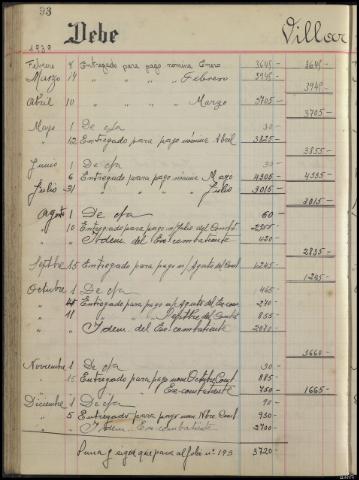 93
Debe Villar
1939
Febrero 8 Entregado para pago nómina Enero 3645- 3645-
Marzo 14 " " " " Febrero 3945-
3945-
Abril 10 " " " " Marzo 3705-
3705-
Mayo 1 De cta 30-
" 12 Entregado para pago nómina Abril 3325-
3355-
Junio 1 De cta 30-
" 6 Entregado para pago nómina Mayo 4305- 4335-
Julio 31 " " " " Julio 3015-
3015-
Agosto 1 De cta 60-
" 10 Entregado para pago n/ Julio del Comb 2355-
" " Idem del Ex-combatiente 420-
2835-
Septbre 15 Entregado para pago n/ Agosto del Comb 1245-
1245-
Octubre 1 De cta 465-
" Entregado para pago n/ Agosto del Ex-com 270-
" 11 " " " Septbre del Combt 855-
" " Idem del Ex-combatiente 2070-
3660-
Noviembre 1 De cta 30-
" 15 Entregado para pago nom Octubre Comt 885-
" " " " " Ex-combatiente 750- 1665-
Diciembre 1 De cta 90-
" 5 Entregado para pago nom Nbre Comt 930-
" " Idem Ex-combatiente 2700-
Suma y sigue que pasa al folio nº 193 3720-